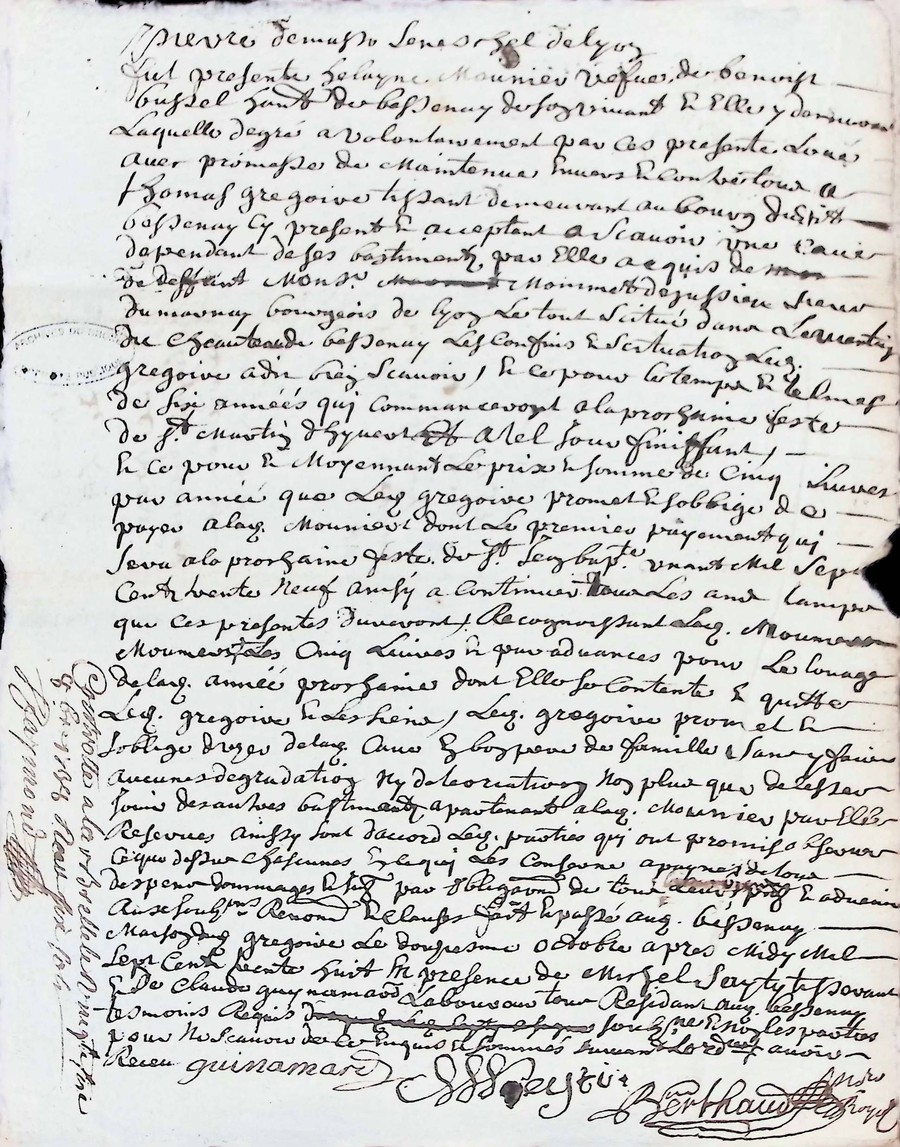 pierre demasso seneschel de lyon
fut presente helayne Mounier vefue de benoist
bussel hant de bessenay de son vivant Et Elle y demeurant
Laquelle de gré a volontairement par ces presente Loué
avec promesse de Maintenue Envers Et Contre tous a
thomas gregoire tissant demeurant au bourg dudit
bessenay Cy present Et acceptant a Scavoir une Cave
dependant de ses bastiments par Elle acquis de
de deffunt Monsr. Mommet dejussieu sieur
du marnay bourgeois de lyon Le tout Scitué dans
du Chauteau de bessenay Les Confins Et Scituation Led.
gregoire a dit bien Scavoir, Et ce pour le temps Et
de six années qui Commanceront a la prochaine feste
de St. Martin d'hyvert Et a tel Jour finissant,
Et ce pour Et Moyennant Le prix Et somme de Cinq Livres
par année que Led. gregoire promet Et sobbige de
payer a lad. Mounier dont Le premier payement qui
sera a la prochaine feste de St. Jean bapte. vnant Mil Sept
Cent trente Neuf ainsy a Continuer tous Les ans tamps
que Ces presentes dureront, Recognoissant Lad. Mounier
Mounier Les Cinq Livres Et par advances pour Le louage
de lad. année prochaine dont Elle se Contente Et quitte
Led. gregoire Et Les siens, Led. gregoire promet Et
soblige d'uzer de lad. Cave En bon pere de famille Sans y faire
aucunes degradation Ny deteoriation Non plus que de lesser
Jouir des autres bastiments apartenant a lad. Mounier par Elle
Reservés Ainssy sont d'accord Led. parties qui ont promis observer
Ce que dessus Chascunes En ce qui Les Conserne a paynes de tous
despens dommages Et par obligaons de tous Et advenir
Renons Et Clauses fait Et passé aud. bessenay
Maison dud gregoire Le dousiesme octobre apres Midy Mil
Sept Cent trente huit En presence de Michel tisserant
Et De Claude guynamard Laboureur tous Residant aud. bessenay
tesmoins Requis soubsne Et non les parties
pour Ne Scavoir de Ce Enquis Et sommés suivant Lord
Receu guinamard
Berthaud Notre
Royal
Raymond